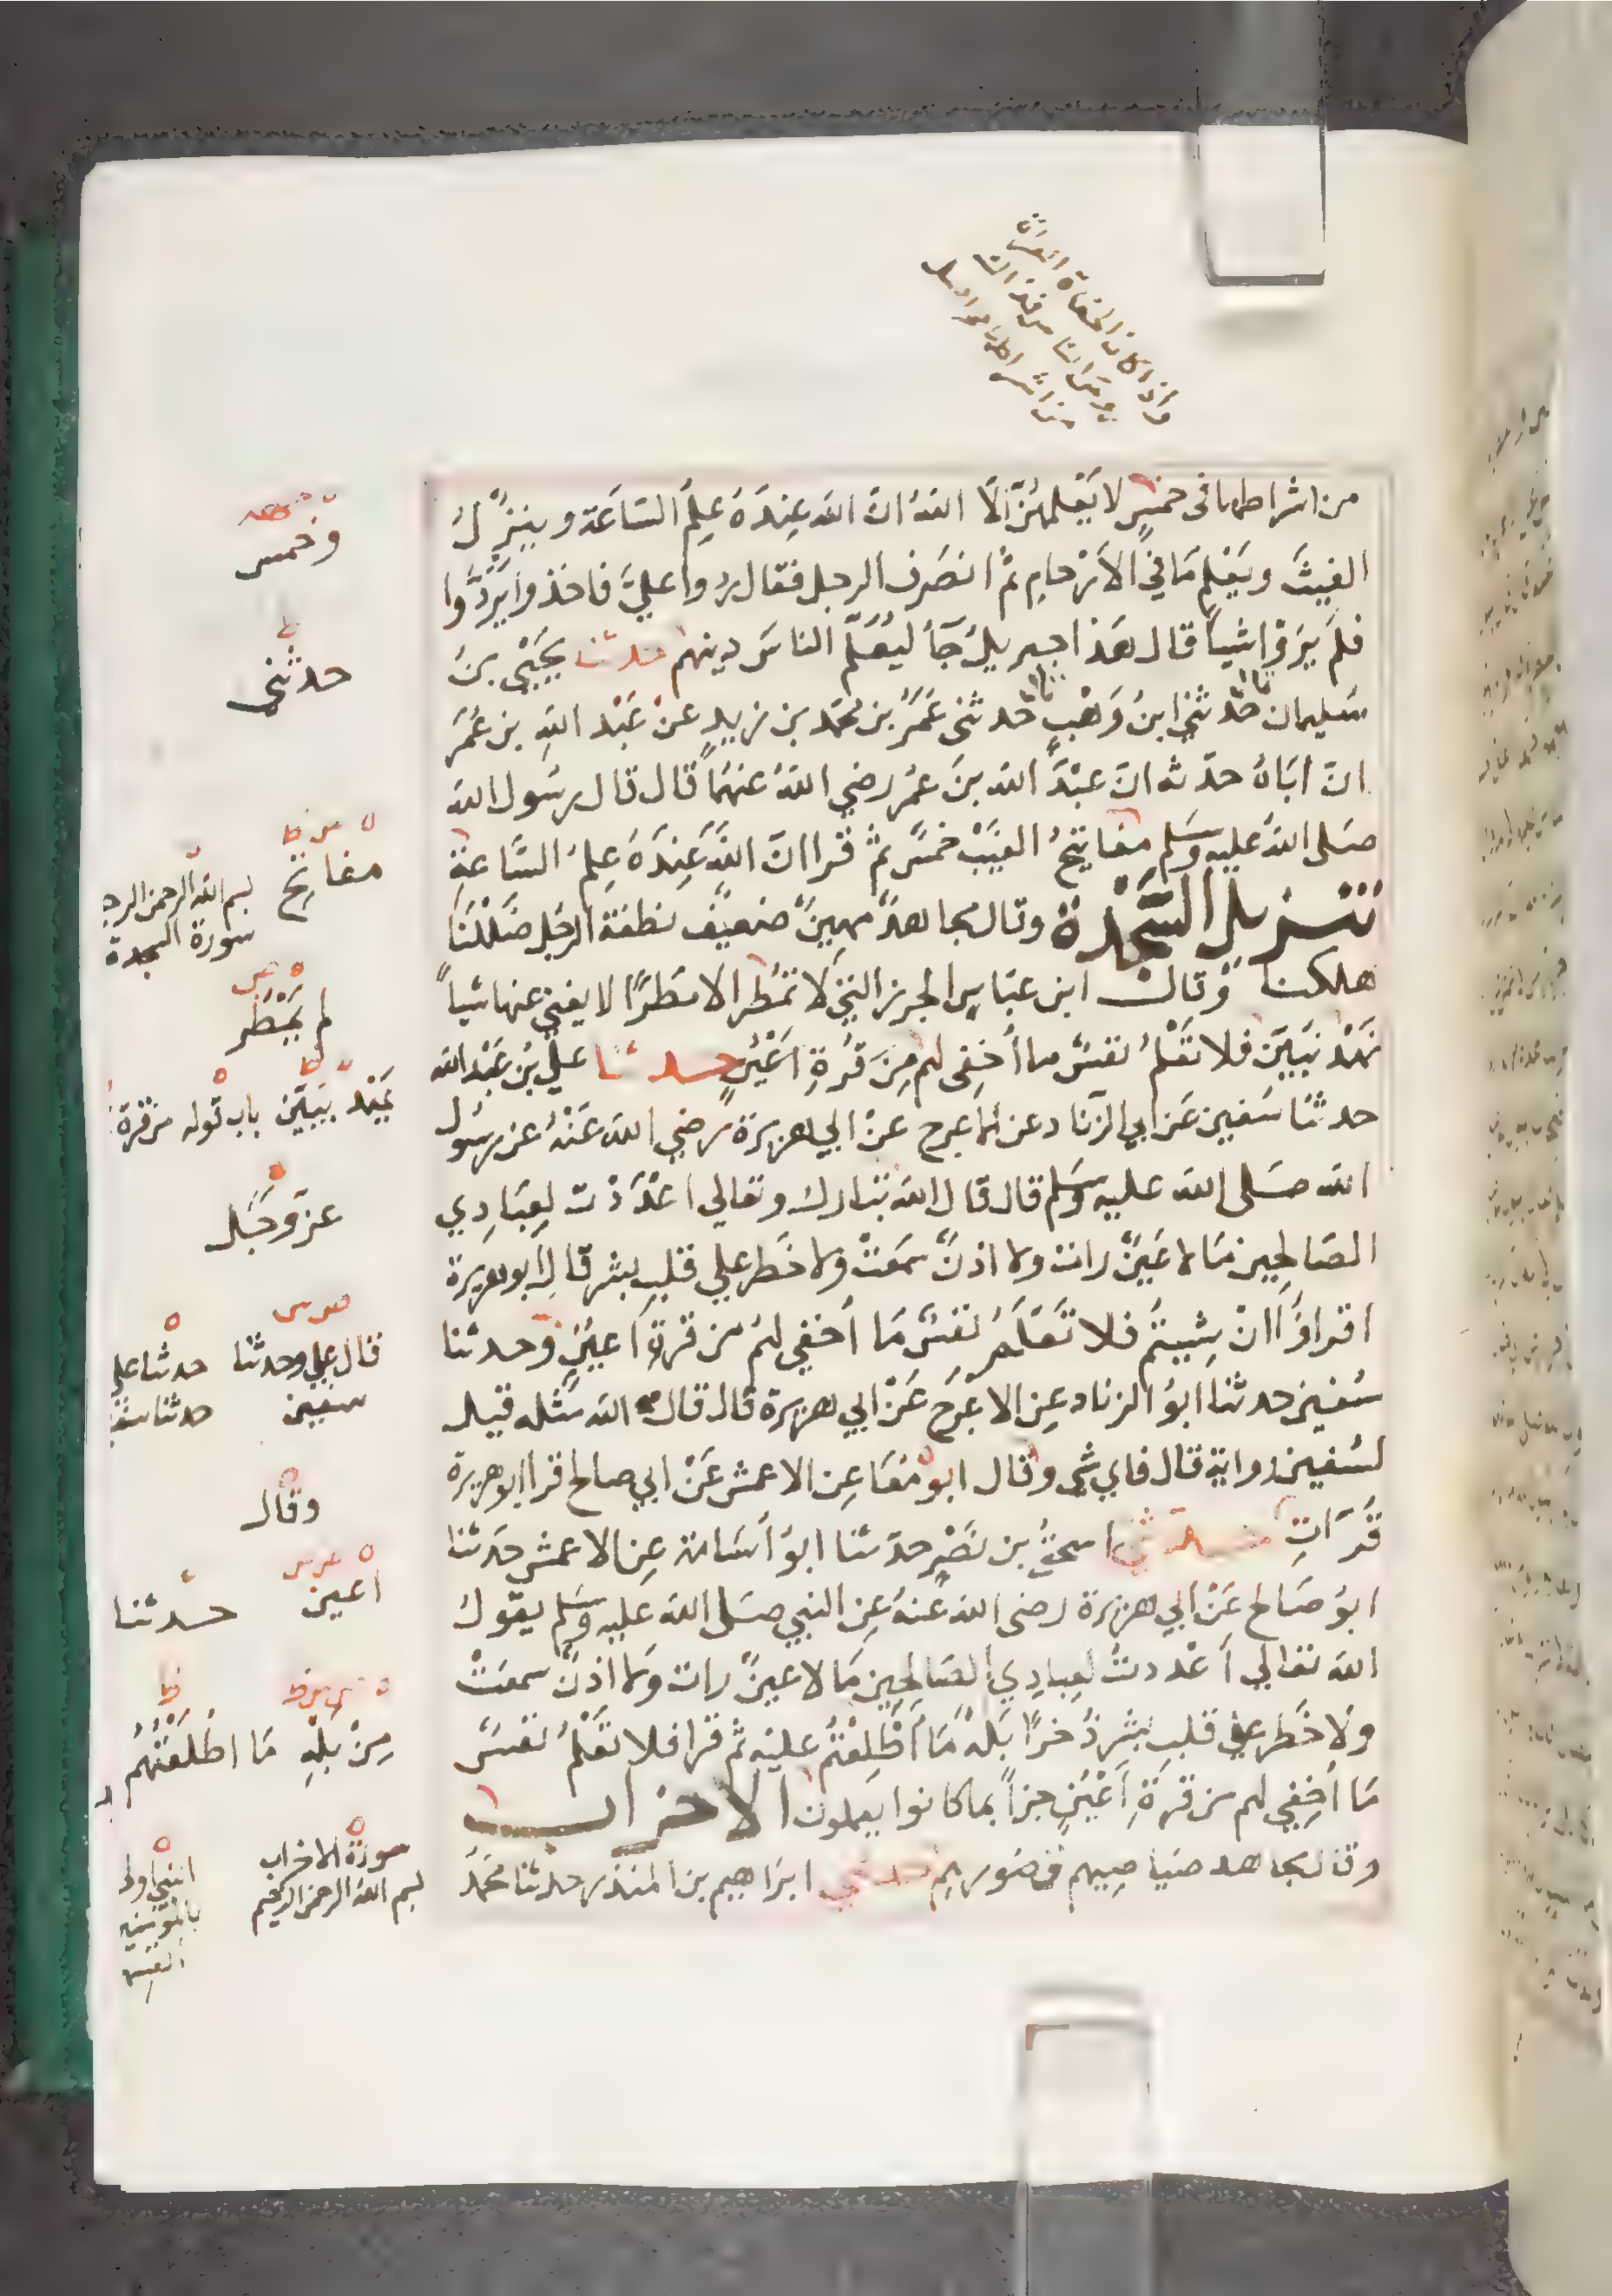 واذا كان الحفاة العراة
رؤس الناس فذاك
من اشراطها
من اشراطها فى خمسٍ لا يَعْلمهُنَّ الَّا اللهُ انّ الله عِندَهُ عِلمُ السَّاعَة وينزّلُ
الغيثَ ويَعْلم مَا في الاَرْحامِ ثمَّ انصَرف الرجل فقال ردوا عليَّ فاخذوا ليَرُدُّوا
فلَم يَرَوا شياً قال هَذا جبريلُ جَآءَ ليُعَلّمَ الناسَ دينهم حدثنا يَحْيٰى بنُ
سُليمان حدّثنى ابنُ وَهْبٍ حدثنى عُمَرُ بن محمّد بن زيدٍ عنْ عَبْد اللهِ بن عُمَرَ
انّ ابَاهُ حدّثه انّ عبْدَ الله بنَ عمُر رضي اللهُ عنهُمَا قال قال رسُول الله
صَلى الله عليه وسَلم مفاتيحُ الغَيْبْ خمسٌ ثمّ قرا انّ اللهَ عِندَهُ عِلمُ السَّاعةِ
تنزيل السَّجْدة وقال مجاهدٌ مهينٌ ضعيفٌ نطفة الرجُل ضَلَلْنَا
هلكنا وقال ابن عبّاسٍ الجرز التي لَا تمْطَر الا مَطرًا لا يغنى عنها شياً
نَهْد نبَيّن فلا تَعْلمُ نفسٌ ما أخفِى لهم مِن قُرةِ اَعْيُنٍ حدثنا عليُّ بنُ عَبْد الله
حدثنَا سُفين عَن ابي الزناد عن الاعرج عنْ ابي هريرة رضي الله عَنْهُ عن رسُول
الله صَلى الله عليه وسَلم قال قال الله تبارك وتعالي اعْدَدْت لِعِبَادِي
الصَالحِين مَا لا عَيْنٌ رات ولا اذنٌ سمعَتْ ولا خَطَر علي قلبِ بشر قال ابوهريرة
اقراوُا انْ شِيتمُ فلا تَعْلَمُ نفسٌ مَا اُخفي لهمُ من قرةِ اَعيُنٍ وحدثنا
سُفين حدثنا ابوُ الزناد عِن الاعْرَج عَنْ ابي هريرة قال قال الله مثله قيل
لسُفين رواية قال فاي شي وقال ابو مُعَاوية عِن الاعمش عَنْ ابي صالح قرا ابوهريرة
قُرّاتِ حدثني اسحقُ بن نَصْرٍ حدّثنا ابوُ اُسَامة عِن الاعمش حَدثنا
ابوُ صَالح عَنْ ابي هريرة رضى الله عَنهُ عِن النبي صَلى الله عليه وسَلم يقول
الله تعالي اَعْددتُ لعِبادِي الصَالحِين مَا لا عينٌ رات وَلا اذنٌ سمعَتْ
ولا خَطَر علي قلبِ بَشرٍ ذُخرًا بَلْهَ مَا اُطْلِعْتُم عليْه ثمّ قرا فلا تَعْلمُ نفسٌ
مَا اُخِفي لهم من قرةِ اَعْيُنٍ جزآً بما كانوا يعملون الاحزاب
وقال مجاهد صَياصِيهم قصُورهِم حدثني ابرَاهيم بن المنذر حدثنا محَمّد
وخمس
حدثنى
مفاتِح
بسم الله الرحمن الرحـ
سورة السجدة
لم تمْطَر
يَهْد يُبَيّن باب قوله من قرة
عزّوجَل
قال علي وحدثنا
سفين
حدثنا علي
حدثنا سفين
وقال
اعين
حدثنا
مِنْ بلْهِ
مَا اطلعَتْهُم
سورة الاحزاب
بسم الله الرحمن الرحيم
النبي اولى
بالمومنين